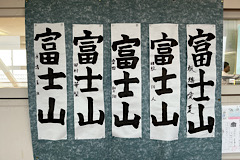 富士山
富士山
富士山
富士山
富士山